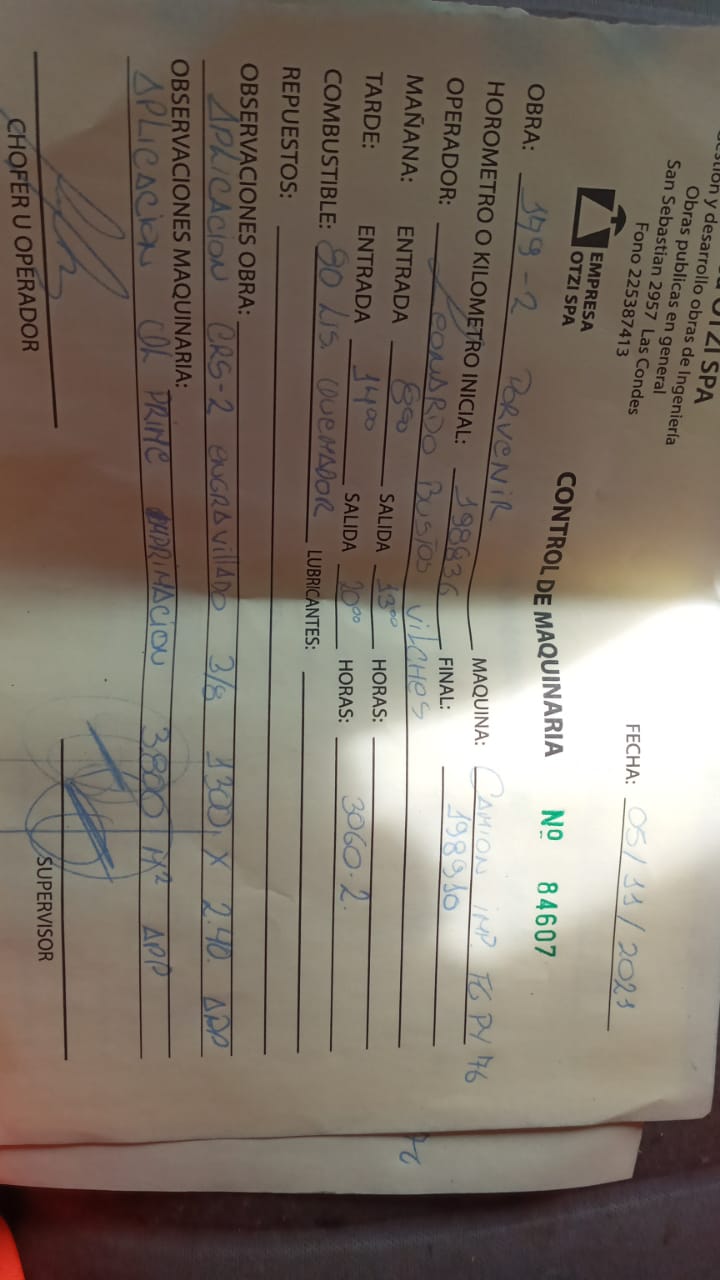 OTZI SPA
Gestión y desarrollo obras de Ingeniería
Obras publicas en general
San Sebastian 2957 Las Condes
Fono 225387413
FECHA: 05/11/2021
EMPRESA
OTZI SPA
CONTROL DE MAQUINARIA Nº 84607
OBRA: 179-2 PORVENIR
MAQUINA: CAMION IMP. FG PY 76
HOROMETRO O KILOMETRO INICIAL: 198836 FINAL: 198910
OPERADOR: LEONARDO BUSTOS VILCHES
MAÑANA: ENTRADA 8:00 SALIDA 13:00 HORAS:
TARDE: ENTRADA 14:00 SALIDA 20:00 HORAS: 3060.2.
COMBUSTIBLE: 80 Lts. QUEMADOR LUBRICANTES:
REPUESTOS:
OBSERVACIONES OBRA:
APLICACION CRS-2 ENGRAVILLADO 3/8 1300 X 2.40. APP
OBSERVACIONES MAQUINARIA:
APLICACION COL PRIME IMPRIMACION 3.800 M² APP
CHOFER U OPERADOR
SUPERVISOR